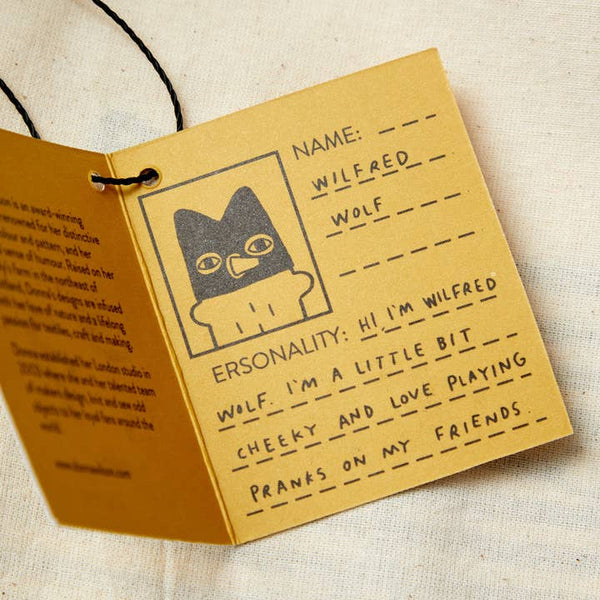 is an award-winning
renowned for her distinctive
colour and pattern, and her
sense of humour. Raised on her
farm in the northeast of
Donna's designs are infused
with her love of nature and a lifelong
passion for textiles, craft and making.
Donna established her London studio in
2003 where she and her talented team
of makers design, knit and sew odd
objects to her loyal fans around the
world.
www.donnawilson.com
NAME:
WILFRED
WOLF
ERSONALITY: HI I'M WILFRED
WOLF. I'M A LITTLE BIT
CHEEKY AND LOVE PLAYING
PRANKS ON MY FRIENDS.